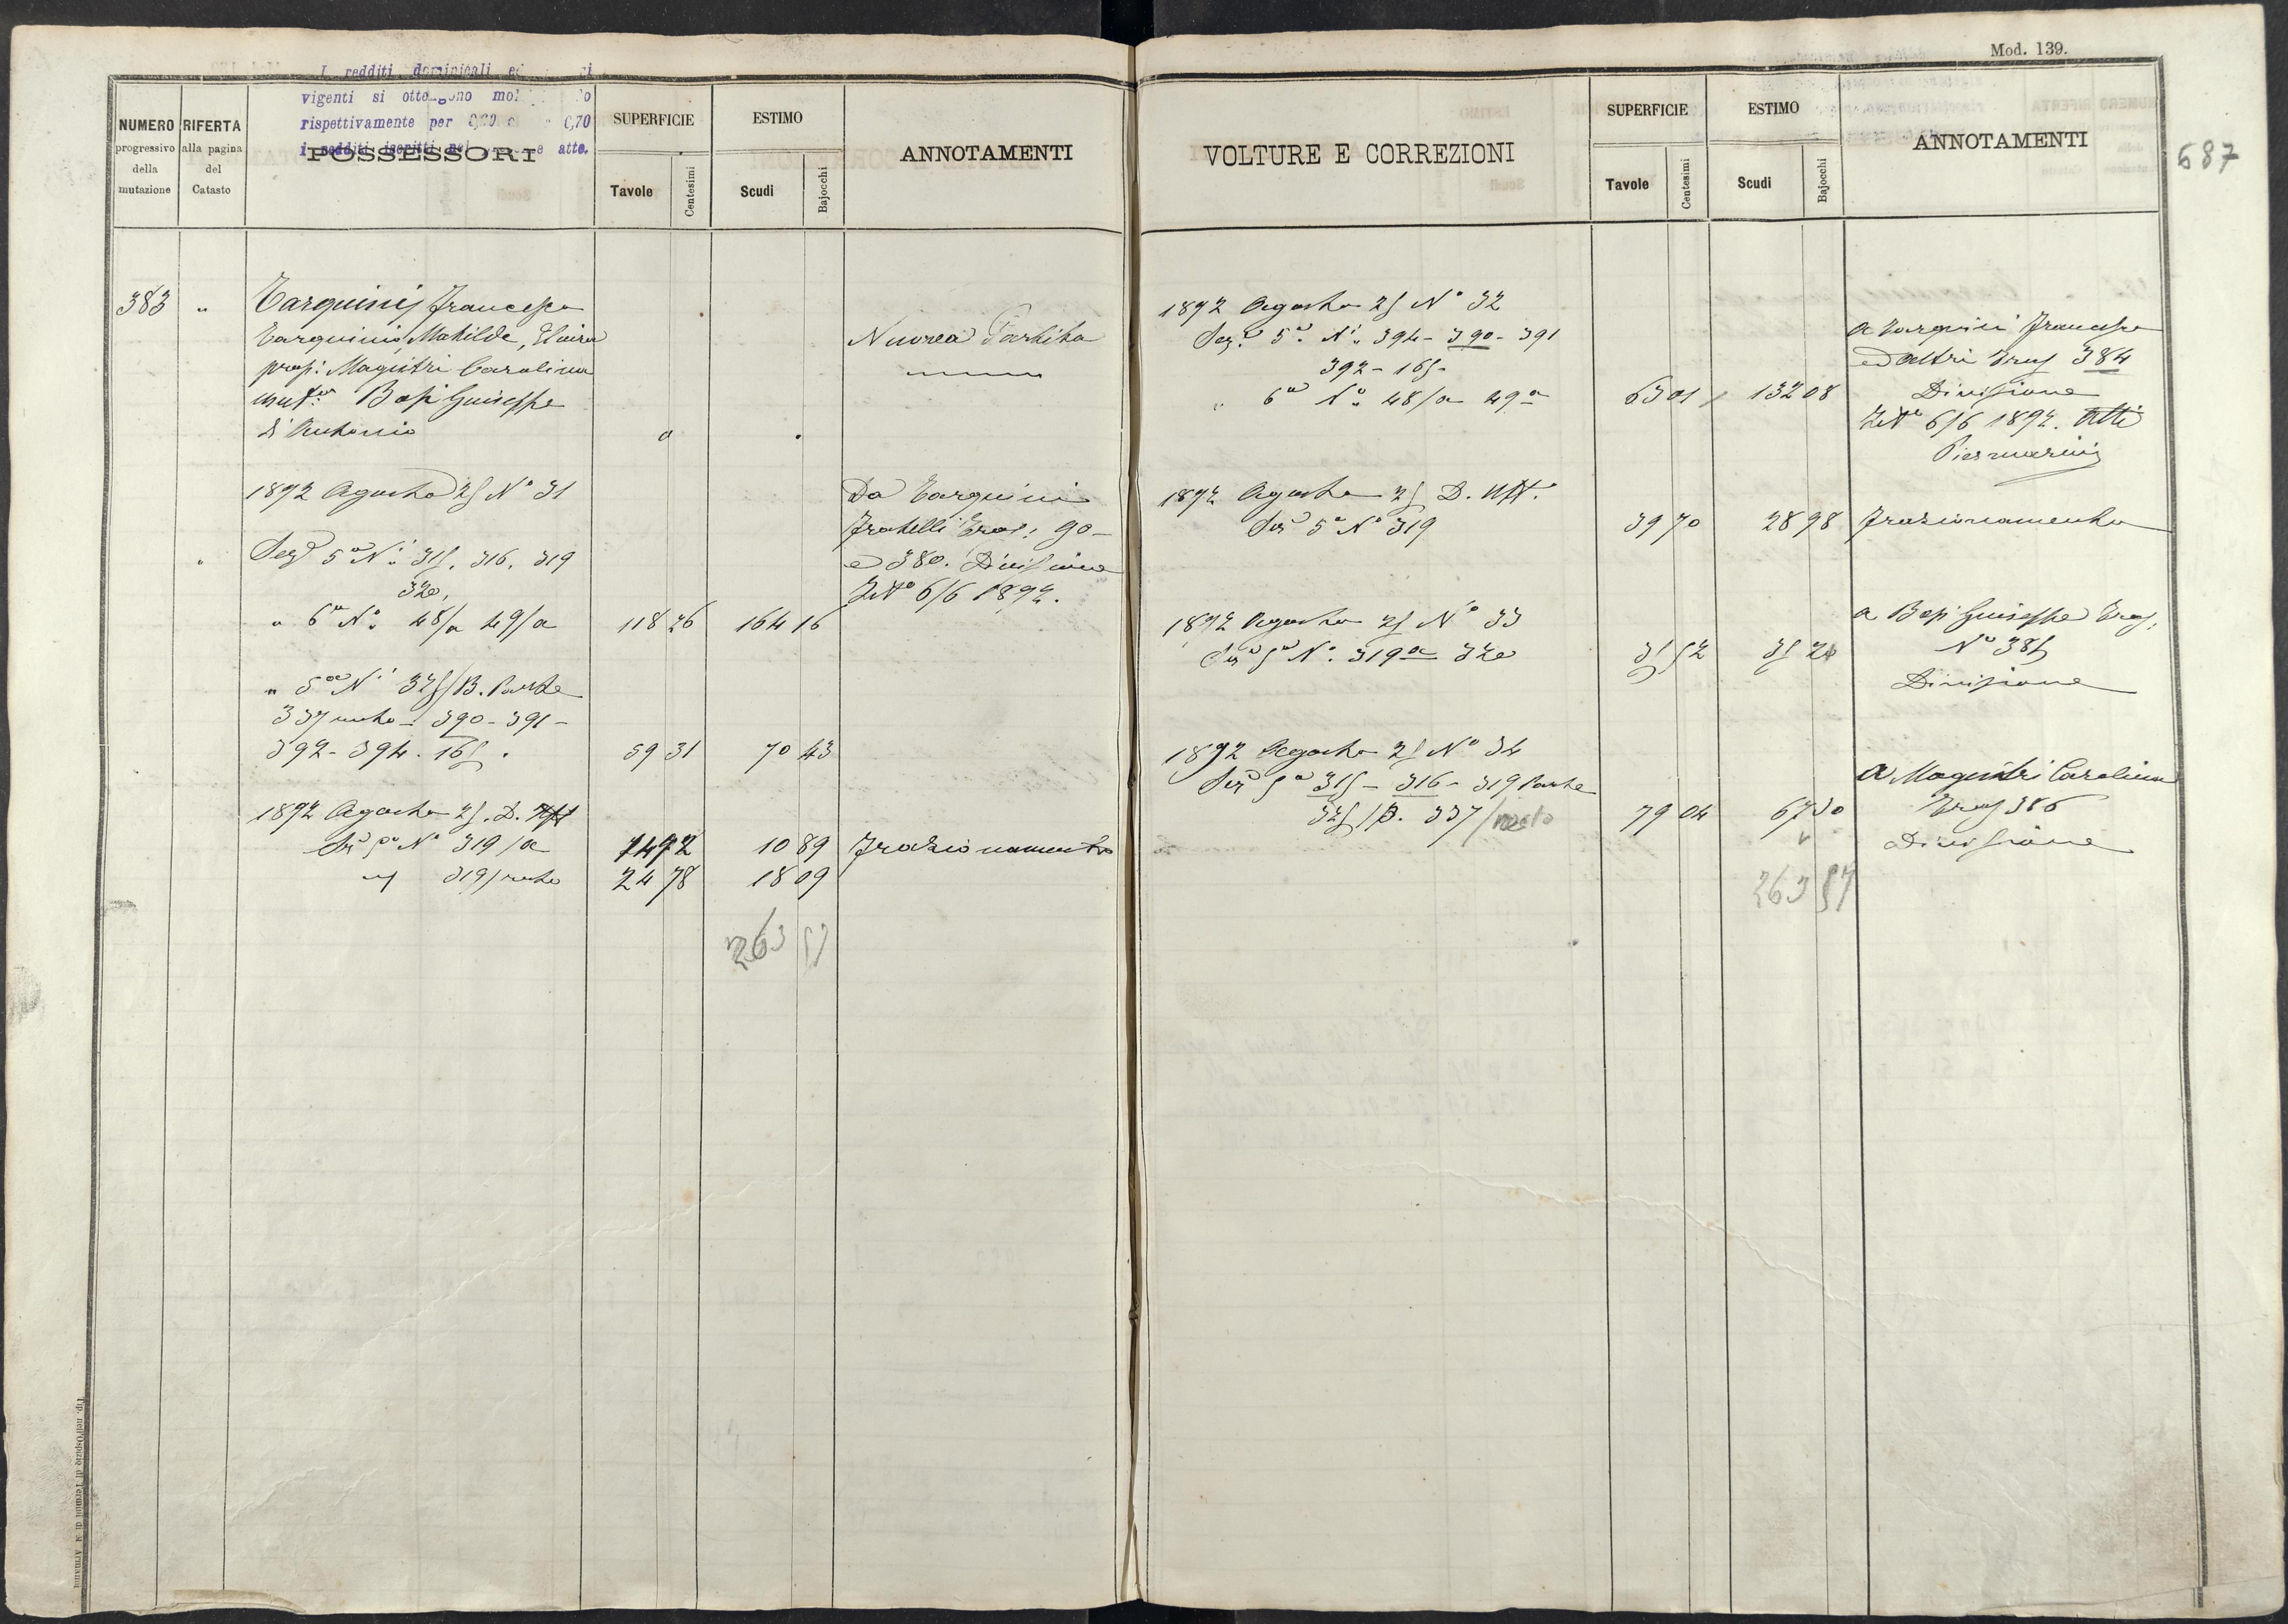 Mod. 139.
687
I redditi dominicali ed
vigenti si ottengono mol
rispettivamente per 0,70
i redditi iscritti nel atto.
NUMERO progressivo della mutazione
RIFERTA alla pagina del Catasto
POSSESSORI
SUPERFICIE
Tavole Centesimi
ESTIMO
Scudi Bajocchi
ANNOTAMENTI
383 " Tarquinij Francesco
Tarquinio, Matilde, Elvira Nuova Partita
prop: Magistri Carolina
Bosi Giuseppe
di Antonio
1892 Agosto 25 N° 31 Da Tarquini
Fratelli Tras: 90-
Sez 5a N: 315. 316. 319 e 380. Divisione
320, 6/6 1892.
" 6a N: 48/a 49/a 118 26 164 16
" 5a N 325/B. Parte
337 resto - 390 - 391 -
392 - 394. 165. 59 31 70 43
1892 Agosto 25. D. Uff
Sez 5a N° 319/a 14 92 10 89 Frazionamento
319/resto 24 78 18 09
263 57
VOLTURE E CORREZIONI
SUPERFICIE
Tavole Centesimi
ESTIMO
Scudi Bajocchi
ANNOTAMENTI
1892 Agosto 25 N° 32
Sez. 5a N: 394 - 390 - 391 a Tarquini Francesco
392 - 165 - ed altri Tras 384
" 6a N: 48/a 49a 63 01 132 08 Divisione
6/6 1892. Atti
Piermarini
1892 Agosto 25 D. Uff.
Sez 5a N° 319 39 70 28 98 Frazionamento
1892 Agosto 25 N° 33 a Bosi Giuseppe Tras.
Sez 5a N: 319a 320 31 52 35 21 N° 385
Divisione
1892 Agosto 25 N° 34
Sez 5a 315 - 316 - 319 Parte a Magistri Carolina
325/B. 337/resto 79 04 67 30 Tras 386
Divisione
263 57
Tip. nell'Ospizio di Termini di M. Armanni